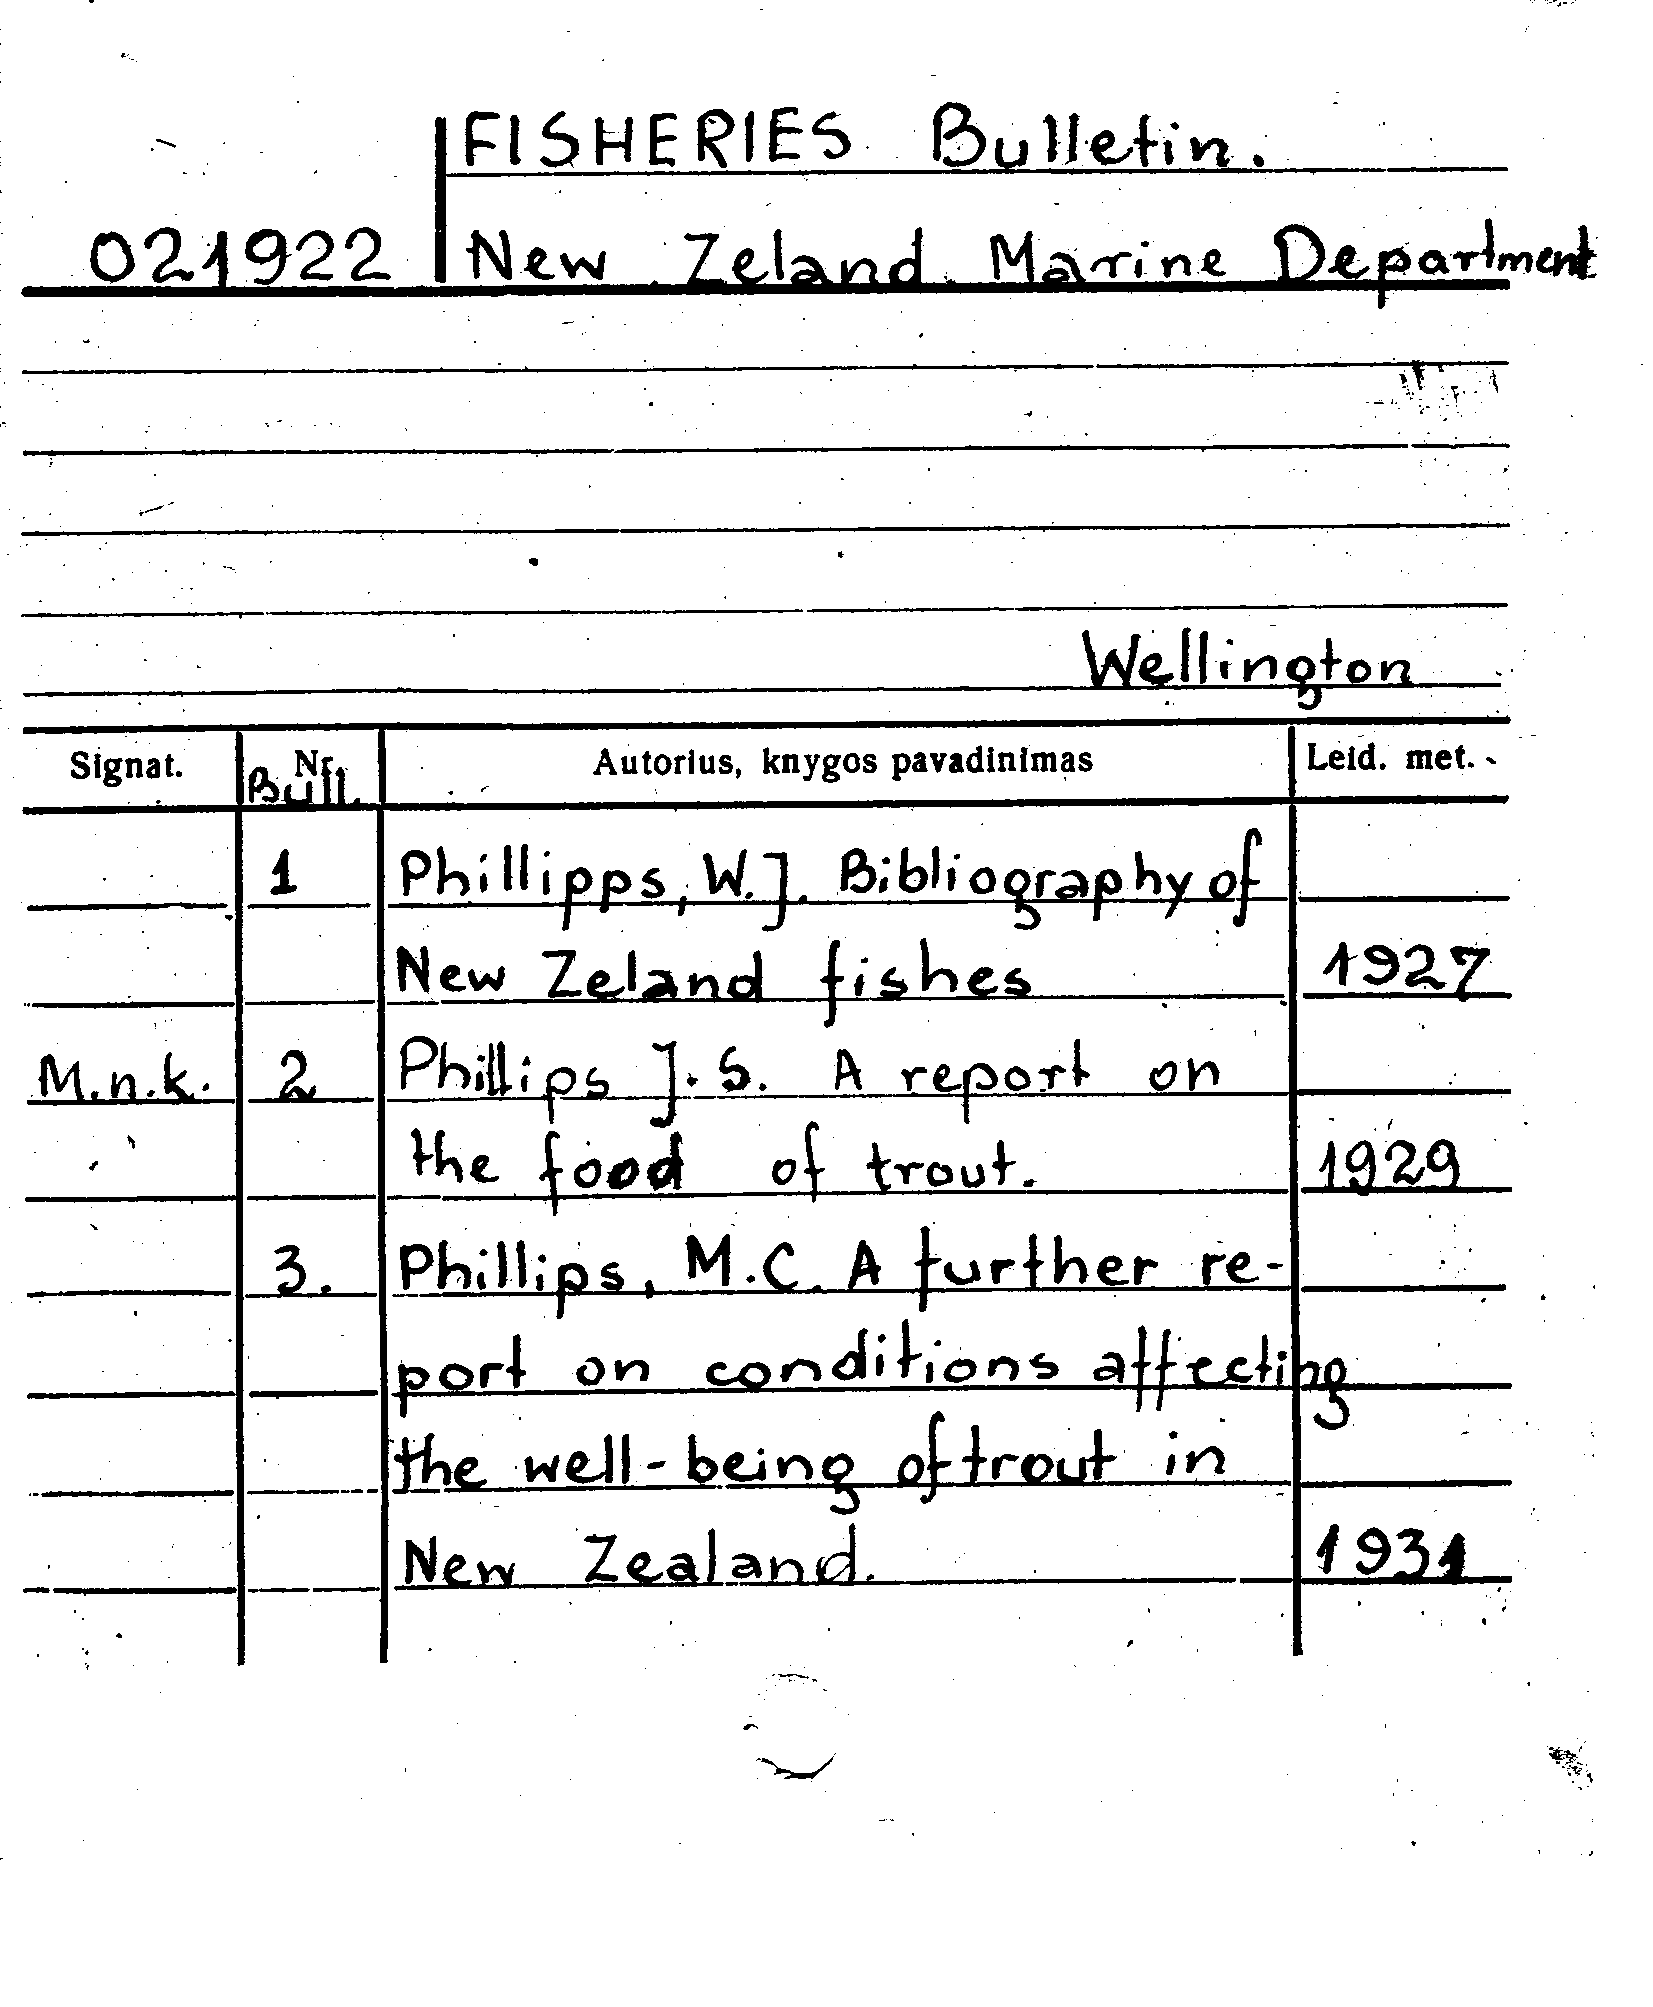 FISHERIES Bulletin.
021922 New Zeland Marine Department
Wellington
Signat. Nr. Bull. Autorius, knygos pavadinimas Leid. met.
1 Phillipps, W.J. Bibliography of
New Zeland fishes 1927
M.n.k. 2 Phillips J.S. A report on
the food of trout. 1929
3. Phillips, M.C. A further re-
port on conditions affecting
the well-being of trout in
New Zealand. 1931